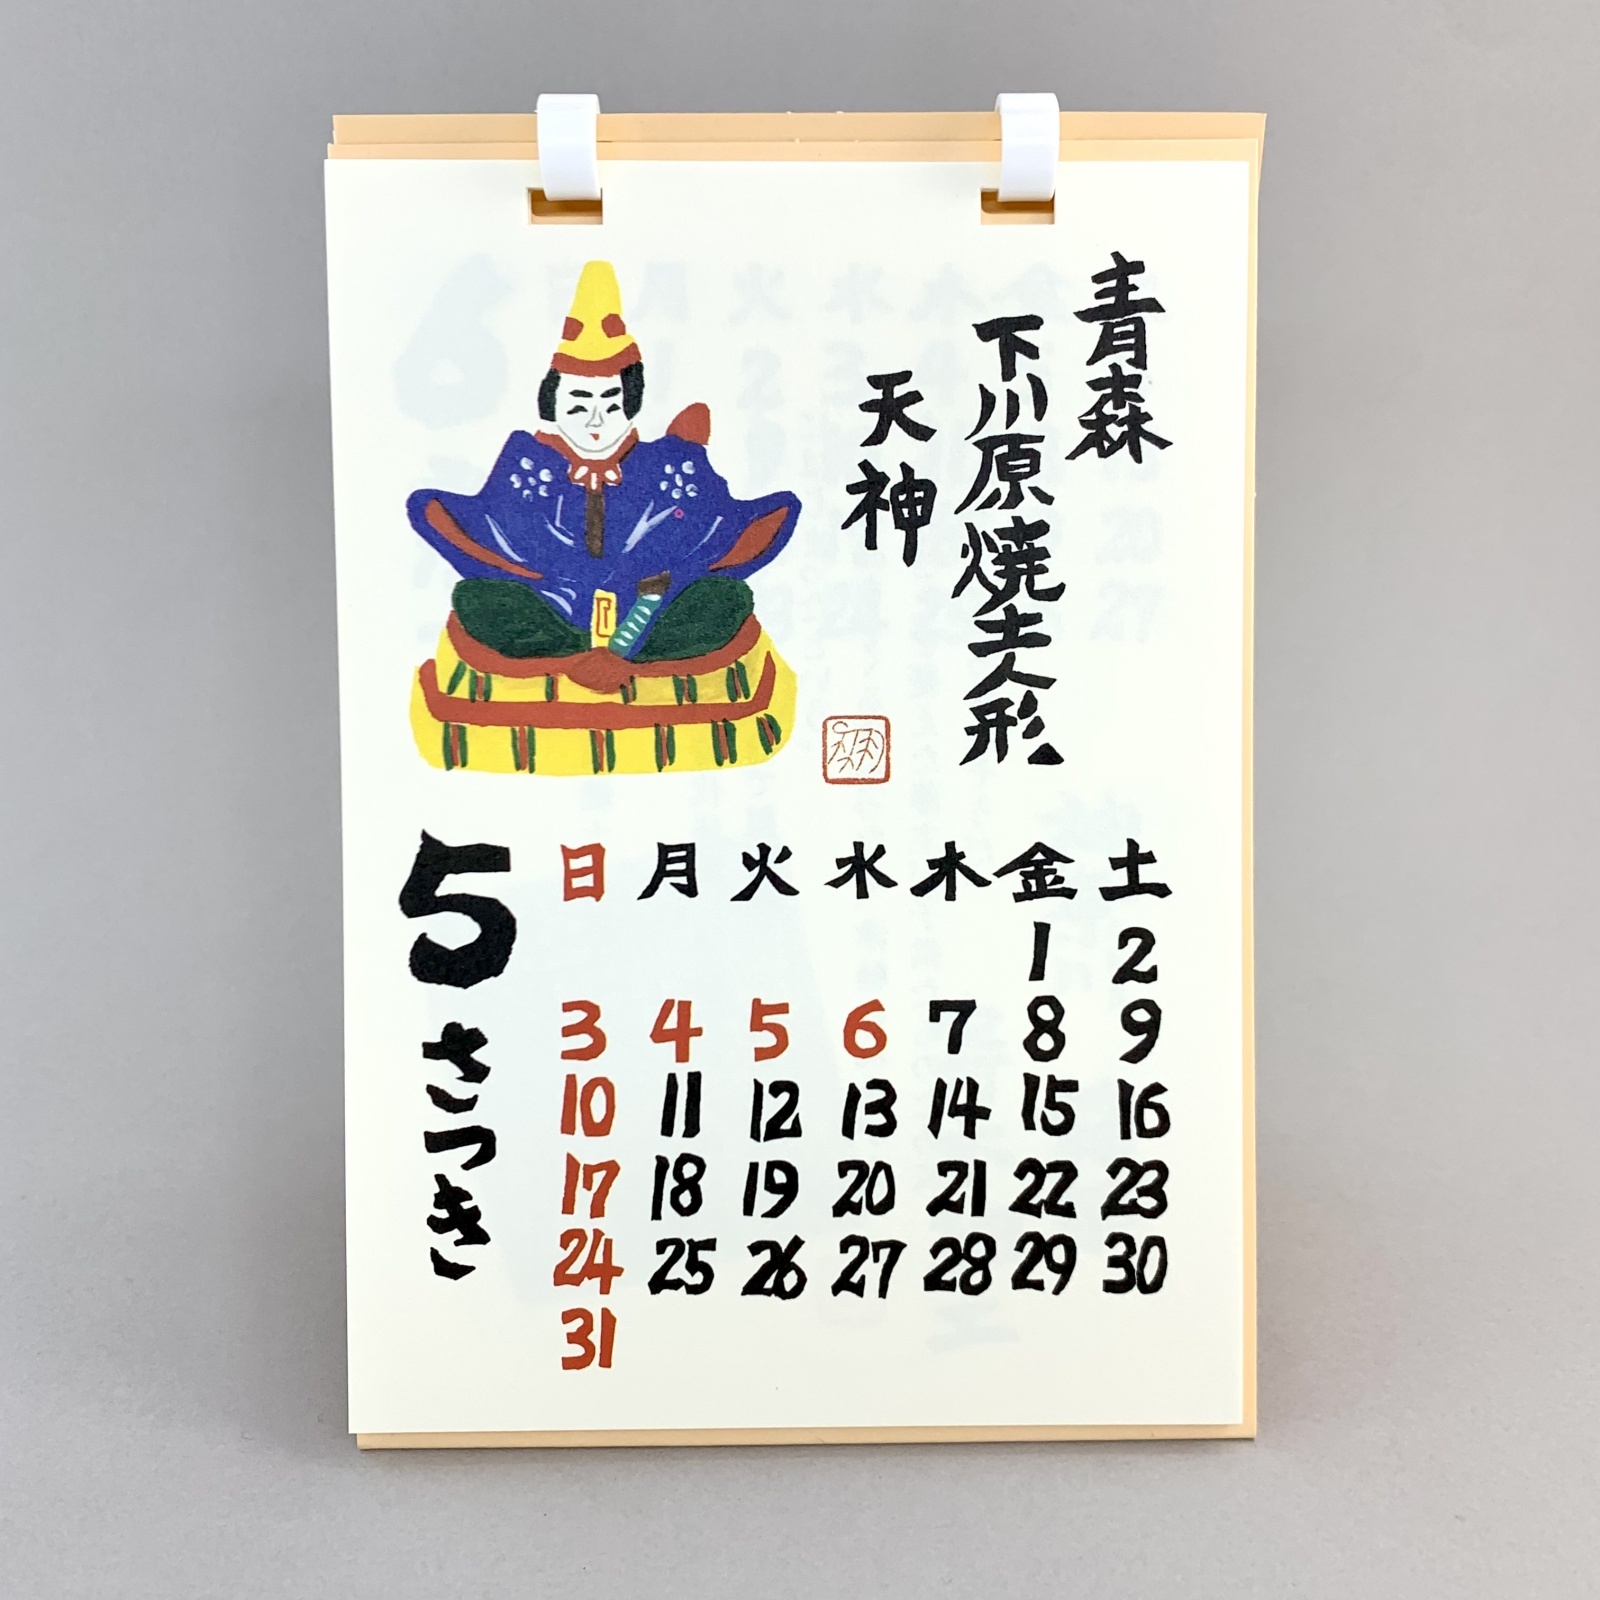 青森
下川原焼土人形
天神
5 さつき
日 月 火 水 木 金 土
1 2
3 4 5 6 7 8 9
10 11 12 13 14 15 16
17 18 19 20 21 22 23
24 25 26 27 28 29 30
31